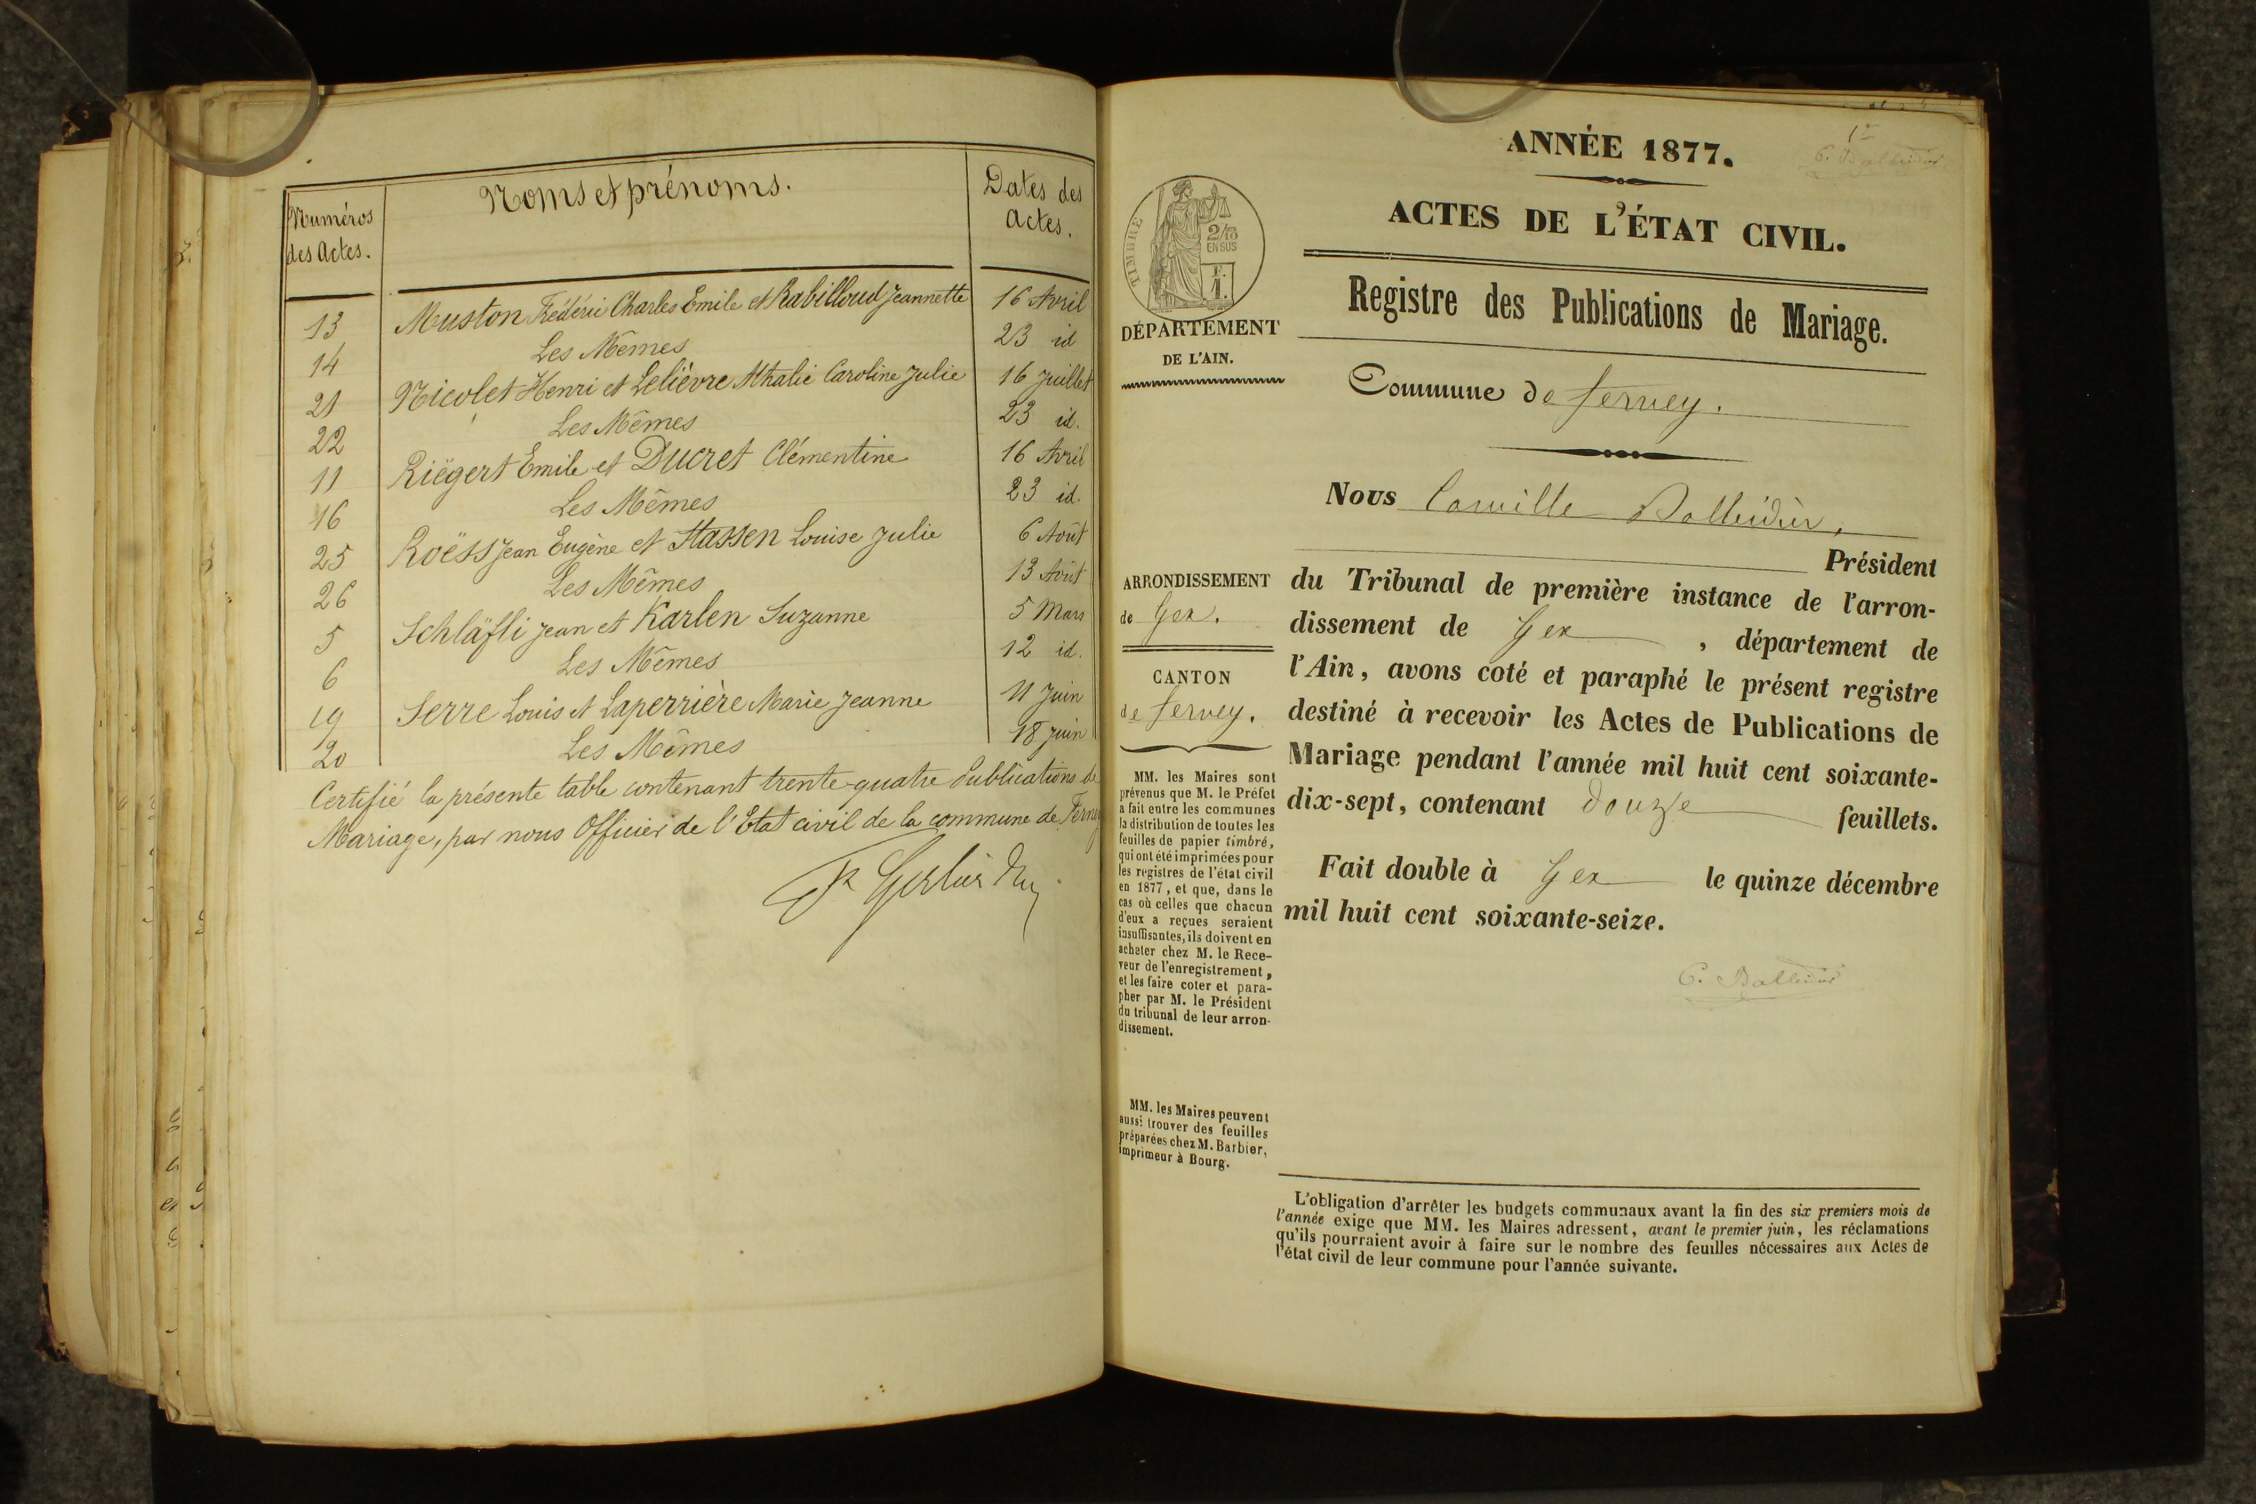 Numéros des Actes.
Noms et prénoms.
Dates des Actes.
13 Muston Frédéric Charles Emile et Rabilloud Jeannette 16 Avril
14 Les Mêmes 23 id
21 Nicolet Henri et Lelièvre Athalie Caroline Julie 16 Juillet
22 Les Mêmes 23 id.
11 Riëgert Emile et Ducret Clémentine 16 Avril
16 Les Mêmes 23 id.
25 Roëss Jean Eugène et Stassen Louise Julie 6 Août
26 Les Mêmes 13 Août
5 Schläfli Jean et Karlen Suzanne 5 Mars
6 Les Mêmes 12 id.
19 Serre Louis et Laperrière Marie Jeanne 11 Juin
20 Les Mêmes 18 Juin
Certifié la présente table contenant trente-quatre Publications de
Mariage, par nous Officier de l'Etat civil de la commune de Ferney
ANNÉE 1877.
1er
ACTES DE L'ÉTAT CIVIL.
TIMBRE
2/10
EN SUS
F.
1.
DÉPARTEMENT
DE L'AIN.
Registre des Publications de Mariage.
Commune de Ferney.
Nous Camille Balleidier,
Président
ARRONDISSEMENT
de Gex.
CANTON
de Ferney.
du Tribunal de première instance de l'arron-
dissement de Gex, département de
l'Ain, avons coté et paraphé le présent registre
destiné à recevoir les Actes de Publications de
Mariage pendant l'année mil huit cent soixante-
dix-sept, contenant douze feuillets.
Fait double à Gex le quinze décembre
mil huit cent soixante-seize.
C. Balleidier
MM. les Maires sont
prévenus que M. le Préfet
a fait entre les communes
la distribution de toutes les
feuilles de papier timbré,
qui ont été imprimées pour
les registres de l'état civil
en 1877, et que, dans le
cas où celles que chacun
d'eux a reçues seraient
insuffisantes, ils doivent en
acheter chez M. le Rece-
veur de l'enregistrement,
et les faire coter et para-
pher par M. le Président
du tribunal de leur arron-
dissement.
MM. les Maires peuvent
aussi trouver des feuilles
préparées chez M. Barbier,
imprimeur à Bourg.
L'obligation d'arrêter les budgets communaux avant la fin des six premiers mois de
l'année exige que MM. les Maires adressent, avant le premier juin, les réclamations
qu'ils pourraient avoir à faire sur le nombre des feuilles nécessaires aux Actes de
l'état civil de leur commune pour l'année suivante.